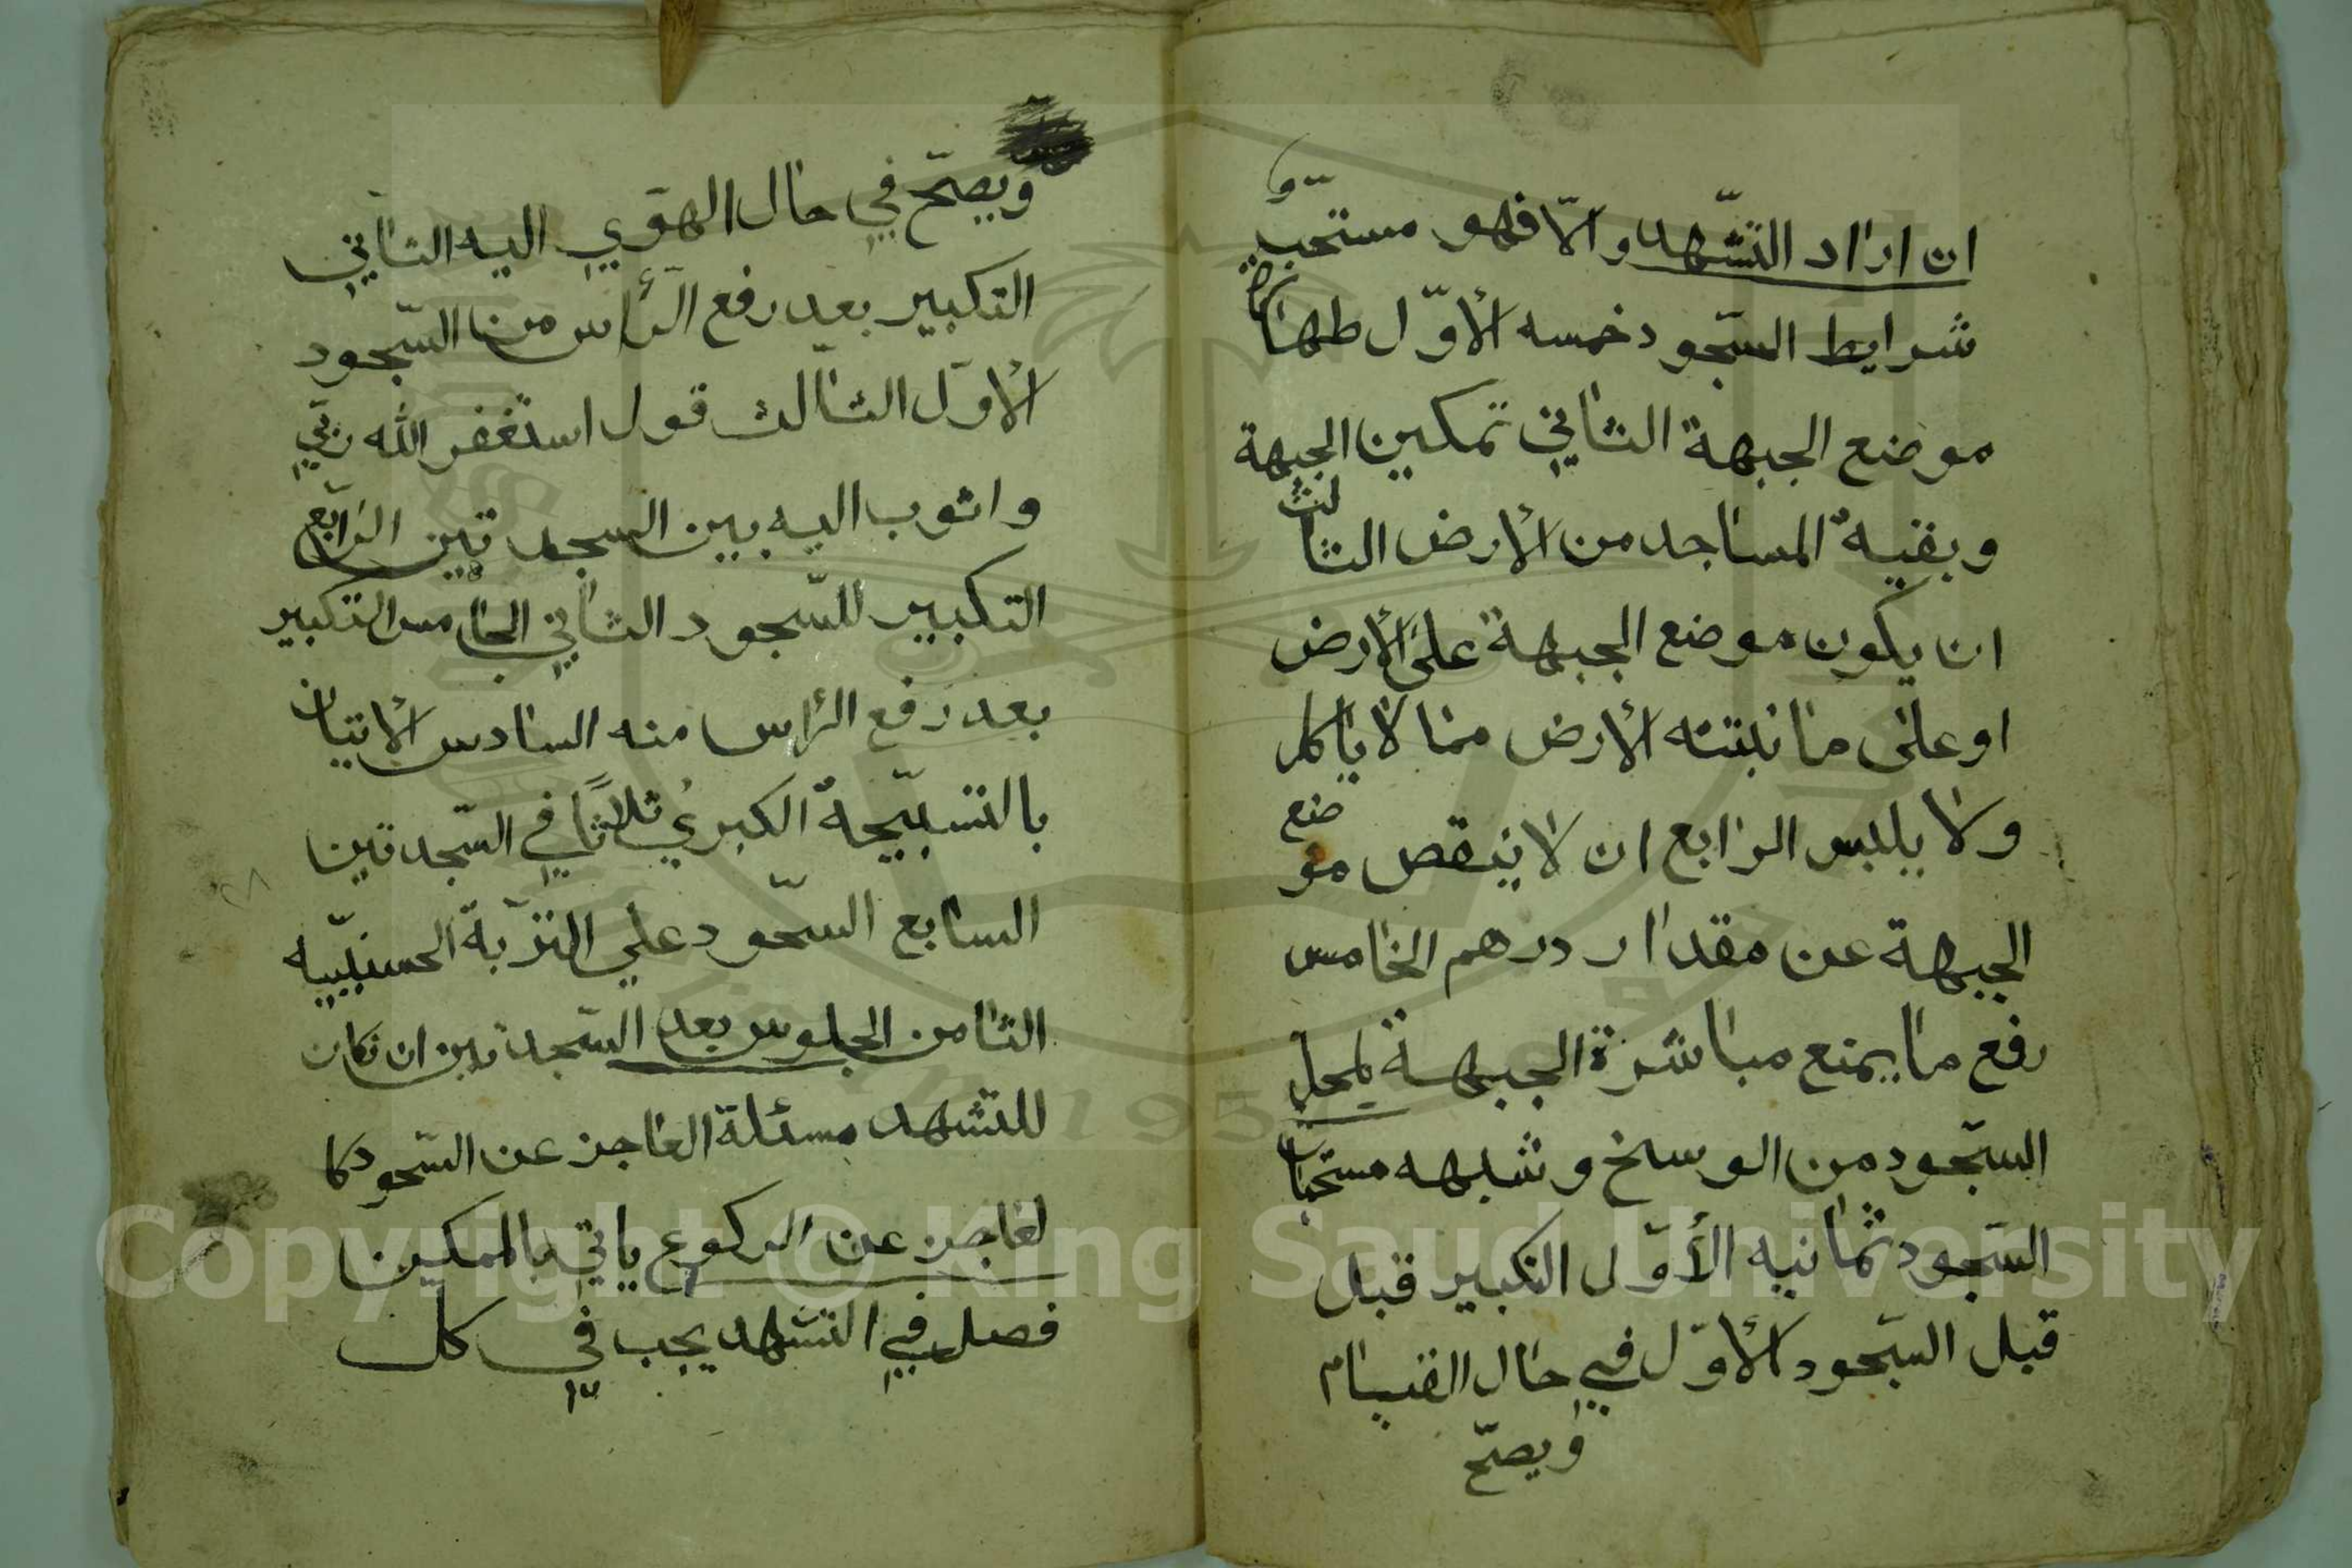 ان اراد التشّهد والّا فهو مستحبّ و
شرايط السّجود خمسه الأوّل طهارة
موضع الجبهة الثاني تمكين الجبهة
وبقية المساجد من الأرض الثالث
ان يكون موضع الجبهة على الأرض
او على ما نبتته الأرض مما لا ياكل
ولا يلبس الرابع ان لا ينقص موضع
الجبهة عن مقدار درهم الخامس
رفع ما يمنع مباشرة الجبهة لمحل
السّجود من الوسخ وشبهه مستحبات
السّجود ثمانيه الأوّل التكبير قبل
قبل السّجود الأوّل في حال القيام
ويصحّ
ويصحّ في حال الهوّي اليه الثاني
التكبير بعد رفع الرأس من السّجود
الأوّل الثالث قول استغفر الله ربّي
واتوب اليه بين السجدتين الرّابع
التكبير للسّجود الثاني الخامس التكبير
بعد رفع الرأس منه السادس الأتيان
بالتسبيحة الكبري ثلاثًا في السّجدتين
السابع السّجود علي التربة الحسنيّيه
الثامن الجلوس بعد السّجدتين ان كان
للتشهد مسئلة العاجز عن السّجود كا
لعاجز عن الركوع ياتي بالممكين
فصل في التشهد يجب في كل
Copyright © King Saud University
1957